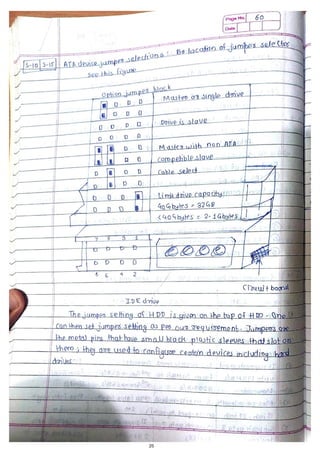 Page No. 60
Date
S-10 S-15 ATA device jumper selections : Be location of jumper selector
see this figure
Option jumper block
Master or single drive
Drive is slave
Master with non ATA
compatible slave
Cable select
Limit drive capacity
40 Gbytes = 32GB
<40 Gbytes = 2.1 Gbytes
7 5 3 1
8 6 4 2
Circuit board
IDE drive
The jumper setting of HDD is given on the top of HDD. One
can then set jumper setting as per our requirement. Jumpers are
the metal pins that have small black plastic sleeves that slot on
them; they are used to configure certain devices including hard
drives.
25